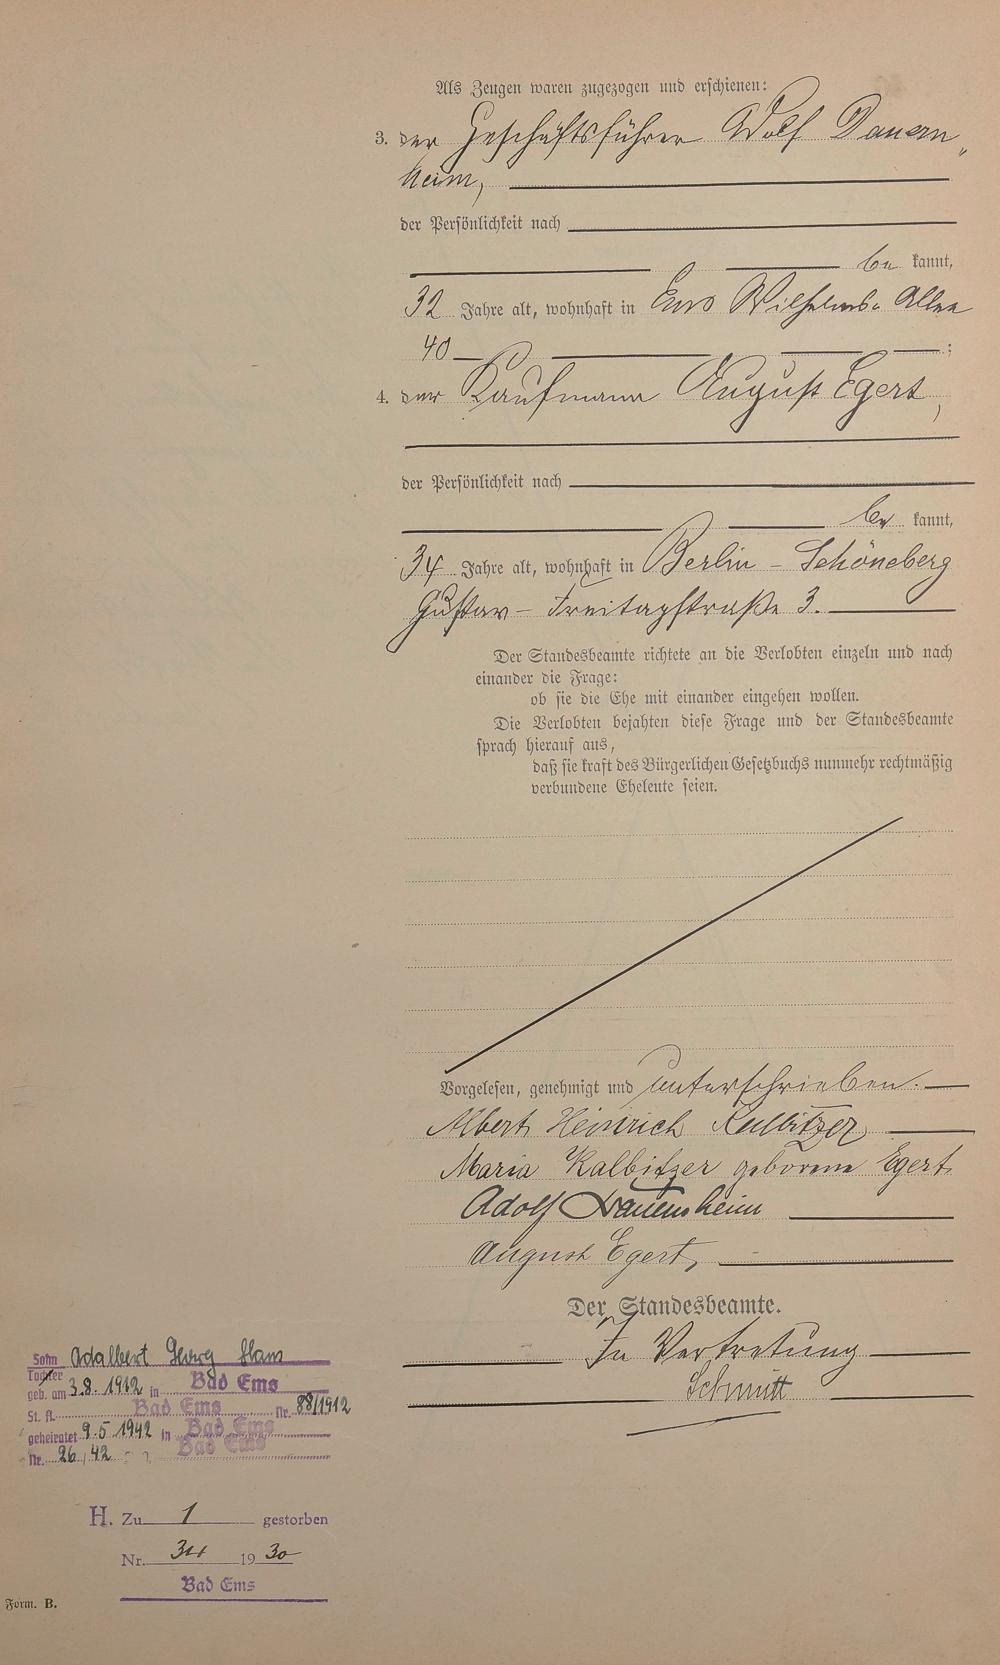 Als Zeugen waren zugezogen und erschienen:
3. der Geschäftsführer Adolf Dauern-
heim,
der Persönlichkeit nach
be kannt,
32 Jahre alt, wohnhaft in Ems Wilhelms-Allee
40 ;
4. der Kaufmann August Egert,
der Persönlichkeit nach
be kannt,
34 Jahre alt, wohnhaft in Berlin-Schöneberg
Gustav-Freitagstraße 3.
Der Standesbeamte richtete an die Verlobten einzeln und nach
einander die Frage:
ob sie die Ehe mit einander eingehen wollen.
Die Verlobten bejahten diese Frage und der Standesbeamte
sprach hierauf aus,
daß sie kraft des Bürgerlichen Gesetzbuchs nunmehr rechtmäßig
verbundene Eheleute seien.
Vorgelesen, genehmigt und unterschrieben.
Albert Heinrich Kalbitzer
Maria Kalbitzer geborene Egert.
Adolf Dauernheim
August Egert,
Der Standesbeamte.
In Vertretung
Schmitt
Sohn Adalbert Georg Hans
Tochter
geb. am 3.8.1912 in Bad Ems
St. A. Bad Ems Nr. 88/1912
geheiratet 9.5.1942 in Bad Ems
Nr. 26/42 Bad Ems
H. Zu 1 gestorben
Nr. 1930
Bad Ems
Form. B.